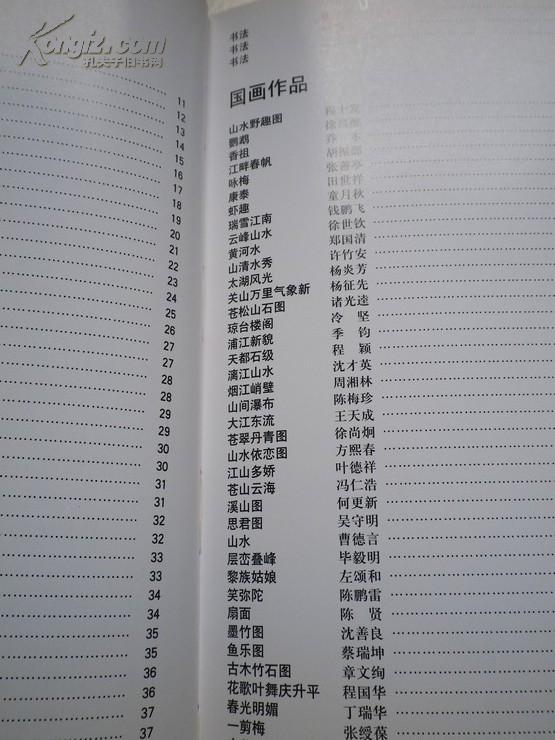 Kongfz.com
孔夫子旧书网
11
12
13
14
15
16
17
18
19
20
21
22
23
24
25
26
27
27
28
28
29
29
30
30
31
31
32
32
33
33
34
34
35
35
36
36
37
37
书法
书法
书法
国画作品
山水野趣图 程十发
鹦鹉 徐昌酩
香祖 乔木
江畔春帆 胡振郎
咏梅
康泰 田世祥
虾趣 童月秋
瑞雪江南 钱鹏飞
云峰山水 徐世钦
黄河水 郑国清
山清水秀 许竹安
太湖风光 杨炎芳
关山万里气象新 杨征先
苍松山石图 诸光逵
琼台楼阁 冷坚
浦江新貌 季钧
天都石级 程颖
漓江山水 沈才英
烟江峭壁 周湘林
山间瀑布 陈梅珍
大江东流 王天成
苍翠丹青图 徐尚炯
山水依恋图 方熙春
江山多娇 叶德祥
苍山云海 冯仁浩
溪山图 何更新
思君图 吴守明
山水 曹德言
层峦叠峰 毕毅明
黎族姑娘 左颂和
笑弥陀 陈鹏雷
扇面 陈贤
墨竹图 沈善良
鱼乐图 蔡瑞坤
古木竹石图 章文绚
花歌叶舞庆升平 程国华
春光明媚 丁瑞华
一剪梅 张绶葆